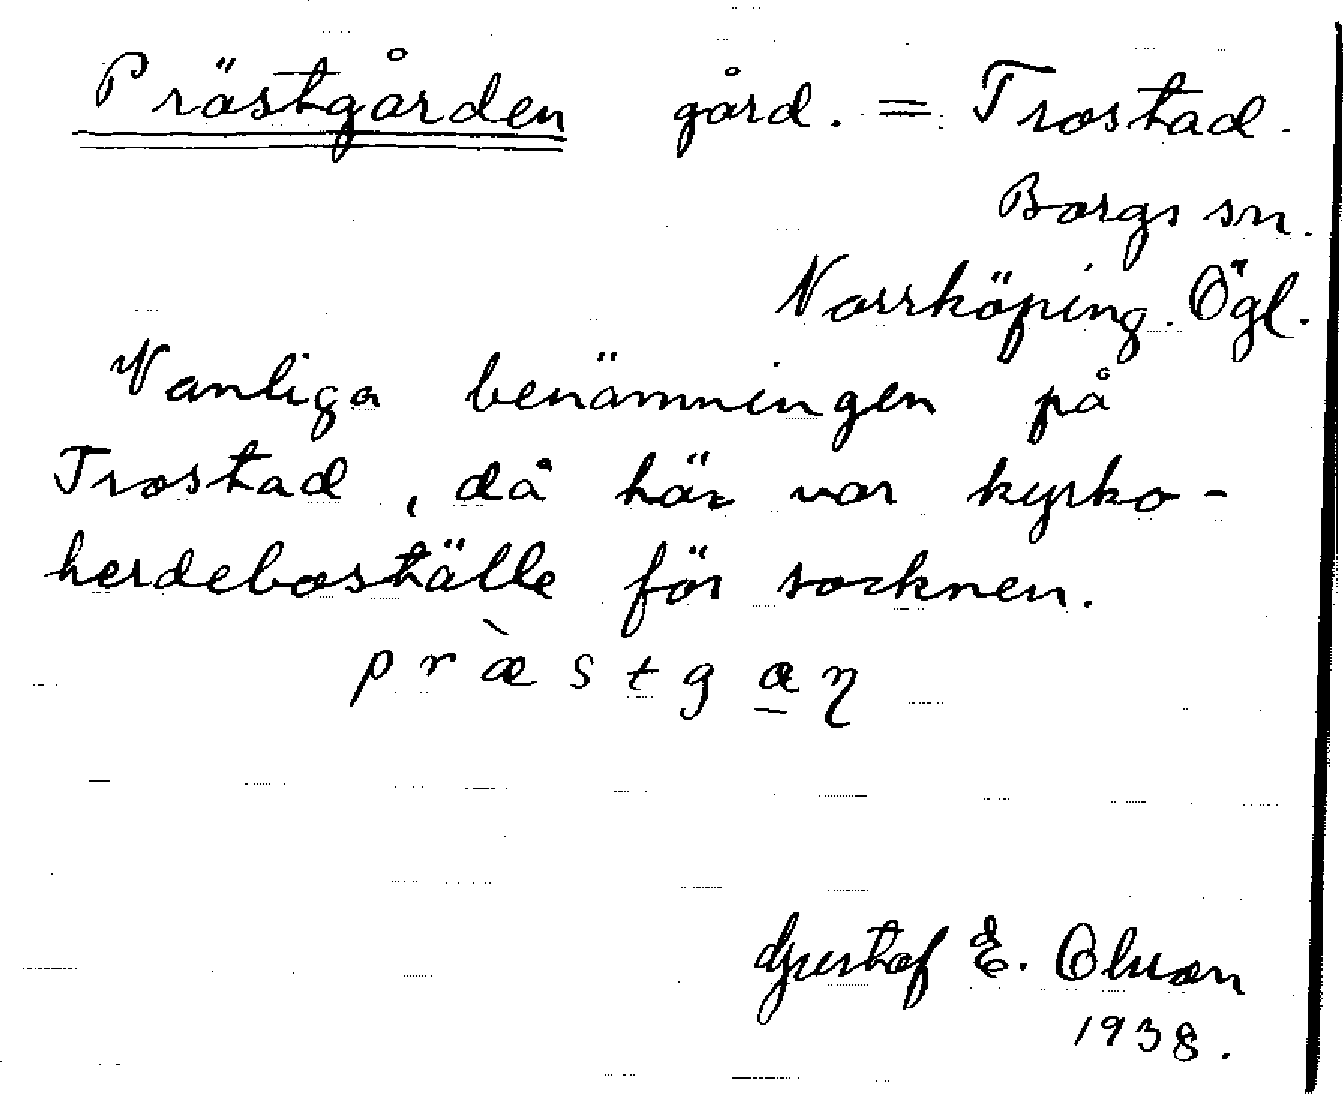 Prästgården gård. = Trostad.
Borgs sn.
Norrköping. Ögl.
Vanliga benämningen på
Trostad, då här var kyrko-
herdeboställe för socknen.
præ̀stga̱ɳ
Gustaf E. Olsson
1938.